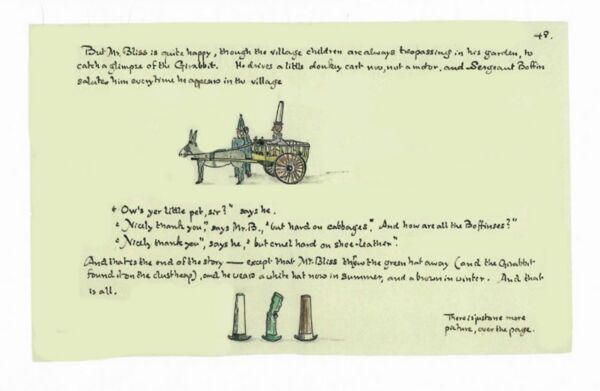 48.
But Mr. Bliss is quite happy, though the village children are always trespassing in his garden, to
catch a glimpse of the Girabbit. He drives a little donkey cart now, not a motor, and Sergeant Boffin
salutes him everytime he appears in the village
"Ow's yer little pet, sir?" says he.
"Nicely thank you," says Mr. B., "but hard on cabbages". And how are all the Boffinses?"
"Nicely thank you", says he, "but cruel hard on shoe-leather".
And that is the end of the story — except that Mr. Bliss threw the green hat away (and the Girabbit
found it on the dustheap), and he wears a white hat now in summer, and a brown in winter. And that
is all.
There is just one more
picture, over the page.